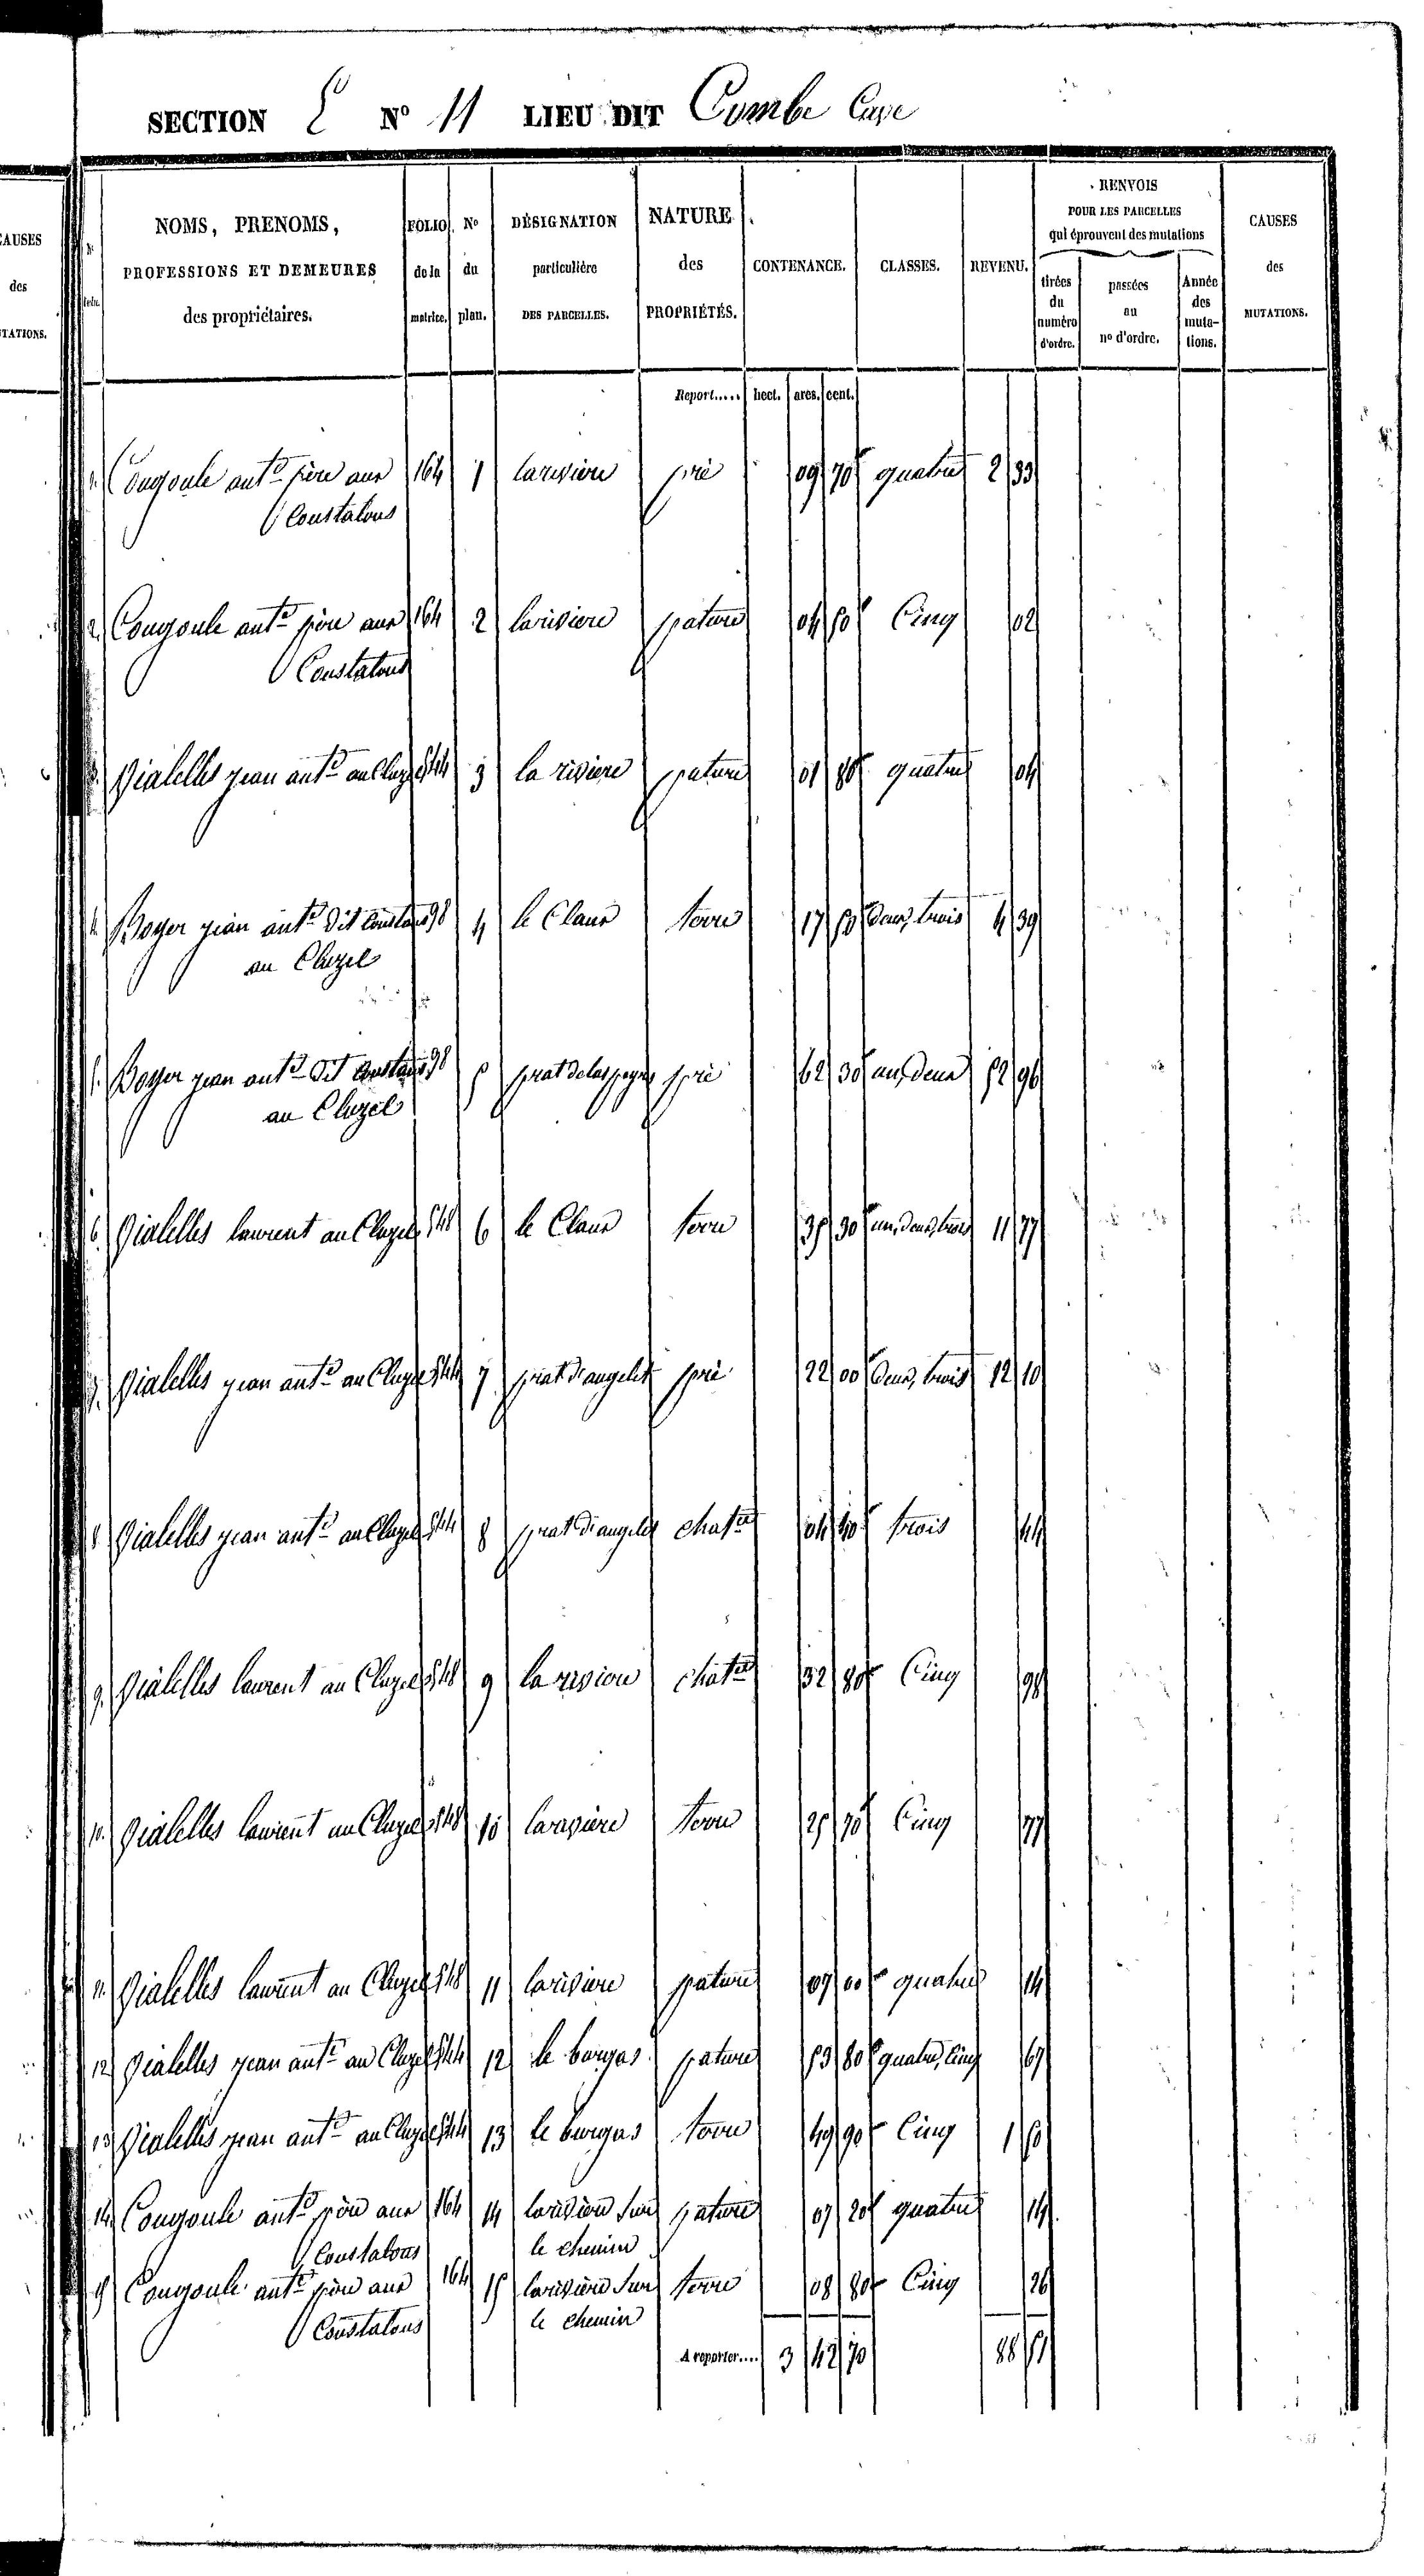 SECTION E N° 11 LIEU DIT Combe Cave
CAUSES
des
MUTATIONS.
NOMS, PRENOMS,
PROFESSIONS ET DEMEURES
des propriétaires.
FOLIO
de la
matrice.
N°
du
plan.
DÉSIGNATION
particulière
DES PARCELLES.
NATURE
des
PROPRIÉTÉS.
CONTENANCE.
CLASSES.
REVENU.
RENVOIS
POUR LES PARCELLES
qui éprouvent des mutations
tirées
du
numéro
d'ordre.
passées
au
n° d'ordre.
Année
des
muta-
tions.
CAUSES
des
MUTATIONS.
Report..... hect. ares. cent.
1 Cougoule ant.e père aux 164 1 larivière pré 09 70 quatre 2 33
Coustalous
2 Cougoule ant.e père aux 164 2 larivière pature 04 50 Cinq 02
Coustalous
3 Vialelles jean ant.e au Cluzel 544 3 la rivière pature 01 80 quatre 04
4 Boyer jean ant.e dit Constans 98 4 le Claux terre 17 50 deux, trois 4 39
au Cluzel
5 Boyer jean ant.e dit Constans 98 5 prat de las pregres pré 62 30 un, deux 52 96
au Cluzel
6 Vialelles laurent au Cluzel 548 6 le Claux terre 35 30 un, deux, trois 11 77
7 Vialelles jean ant.e au Cluzel 544 7 prat d'angelet pré 22 00 deux, trois 12 10
8 Vialelles jean ant.e au Cluzel 544 8 prat d'angelet chat.e 04 40 trois 44
9 Vialelles laurent au Cluzel 548 9 la rivière chat.e 32 80 Cinq 98
10 Vialelles laurent au Cluzel 548 10 larivière terre 25 70 Cinq 77
11 Vialelles laurent au Cluzel 548 11 larivière pature 07 00 quatre 14
12 Vialelles jean ant.e au Cluzel 544 12 le bargas pature 53 80 quatre, Cinq 67
13 Vialelles jean ant.e au Cluzel 544 13 le bargas terre 49 90 Cinq 1 50
14 Cougoule ant.e père aux 164 14 larivière sur pature 07 20 quatre 14
Coustalous le chemin
15 Cougoule ant.e père aux 164 15 larivière sur terre 08 80 Cinq 26
Coustalous le chemin
A reporter.... 3 42 70 88 51